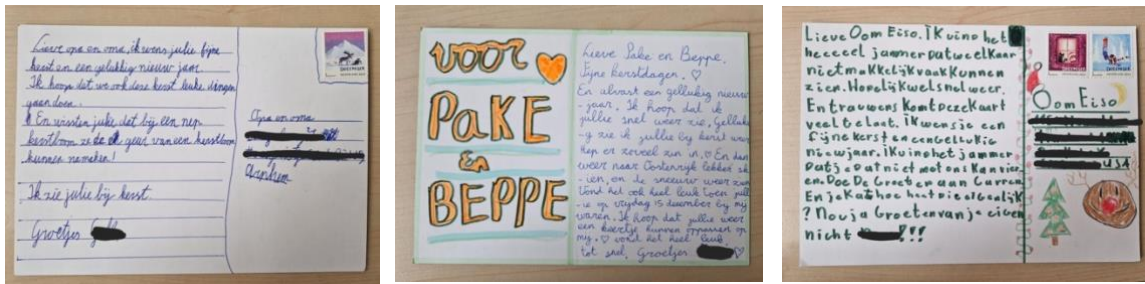 Lieve opa en oma, ik wens julie fijne
kerst en een gelukkig nieuw jaar.
Ik hoop dat we ook deze kerst leuke dingen
gaan doen.
En wisten julie dat bij een nep
kerstboom ze de geur van een kerstboom
kunnen nemaken!
Ik zie julie bij kerst.
Groetjes
DECEMBER
Opa en oma
Arnhem
voor
PAKE
En
BEPPE
Lieve Pake en Beppe.
Fijne kerstdagen.
En alvast een gellukig nieuw
-jaar. Ik hoop dat ik
jullie snel weer zie. Gelluki
-g zie ik jullie bij kerst weer
Heb er zoveel zin in. En dan
weer naar Oostenrijk lekker sk
-ien, en de sneeuw weer zien
Vond het ook heel leuk toen jull
-ie op vrijdag 15 december bij mij
waren. Ik hoop dat jullie weer
een keertje kunnen oppassen op
mij. vond het heel leuk
tot snel, Groetjes
Lieve Oom Eiso. Ik vind het
heeeeel jammer dat we elkaar
niet makkelijk vaak kunnen
zien. Hopelijk wel snel weer.
En trouwens komt deze kaart
veel te laat. Ik wens je een
Fijne kerst en een gellukig
nieuwjaar. Ik vind het jammer
dat je dat niet met ons kan vier-
en. Doe De Groeten aan Curren
En je kat hoe heet die eigenlijk
? Nou ja Groeten van je eigen
nicht !!!
DECEMBER
DECEMBER
Oom Eiso
USA